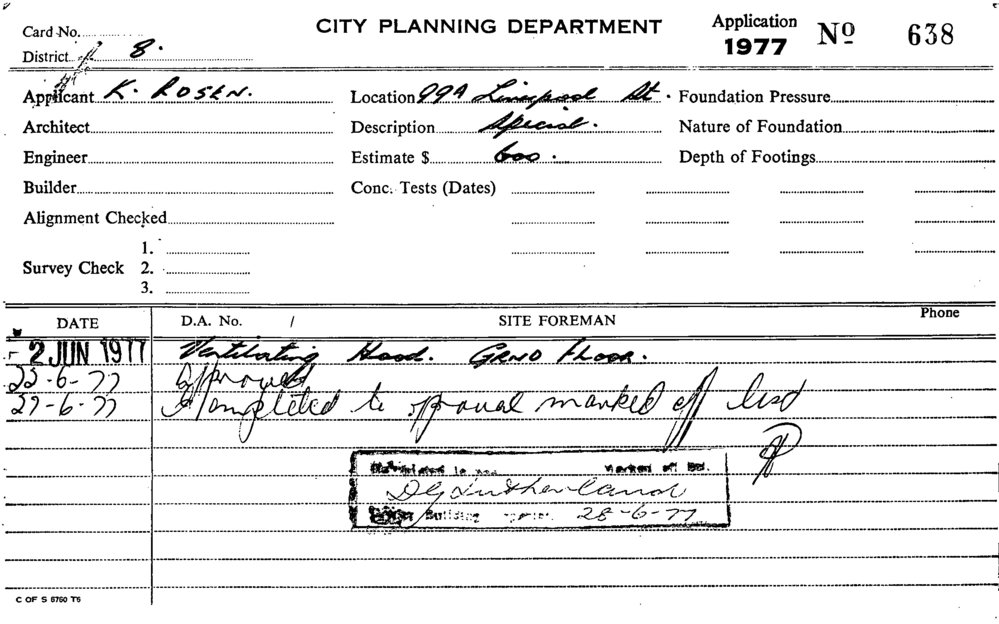 CITY PLANNING DEPARTMENT
Card No.
District 8.
Application
1977 No 638
Applicant K. ROSEN.
Location 99A Liverpool St.
Foundation Pressure
Architect
Description Special.
Nature of Foundation
Engineer
Estimate $ 600.
Depth of Footings
Builder
Conc. Tests (Dates)
Alignment Checked
Survey Check
1.
2.
3.
DATE D.A. No. / SITE FOREMAN Phone
2 JUN 1977 Ventilating Hood. GRND FLOOR.
22-6-77 Approved
27-6-77 Completed to aproval marked off list
to marked off
DG Sutherland
Building 28-6-77
C OF S 6760 T6